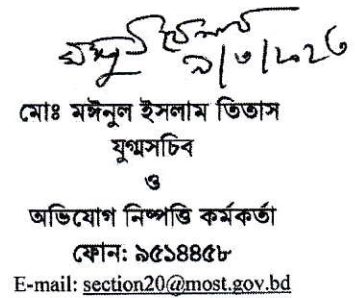 ৯/৩/২০২৩
মোঃ মঈনুল ইসলাম তিতাস
যুগ্মসচিব
ও
অভিযোগ নিষ্পত্তি কর্মকর্তা
ফোন: ৯৫১৪৪৫৮
E-mail: section20@most.gov.bd